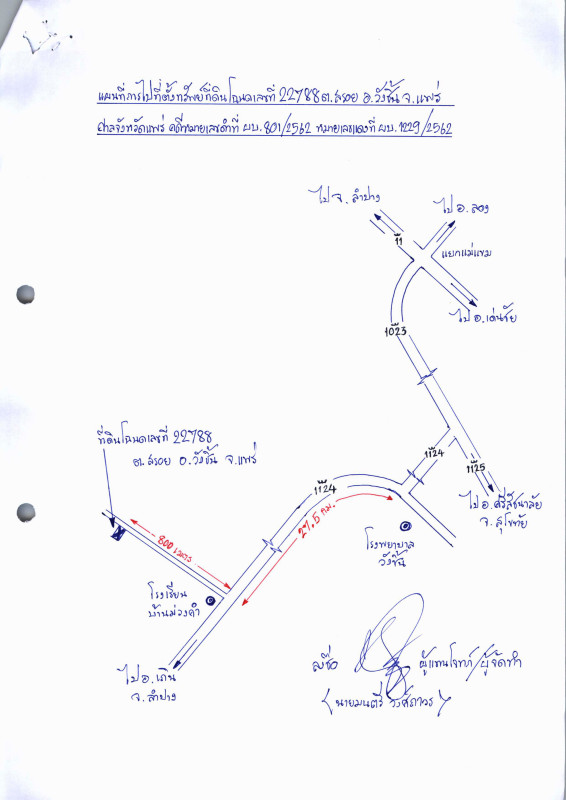 แผนที่การไปที่ตั้งทรัพย์ที่ดินโฉนดเลขที่ 22788 ต.สรอย อ.วังชิ้น จ.แพร่
ศาลจังหวัดแพร่ คดีหมายเลขดำที่ ผบ.801/2562 หมายเลขแดงที่ ผบ.1229/2562
ไป จ.ลำปาง
ไป อ.ลอง
11
แยกแม่แขม
ไป อ.เด่นชัย
1023
ที่ดินโฉนดเลขที่ 22788
ต.สรอย อ.วังชิ้น จ.แพร่
1124
1125
1124
27.5 กม.
ไป อ.ศรีสัชนาลัย
จ.สุโขทัย
โรงพยาบาล
วังชิ้น
800 เมตร
โรงเรียน
บ้านม่วงคำ
ไป อ.เถิน
จ.ลำปาง
ลงชื่อ ผู้แทนโจทก์/ผู้จัดทำ
(นายมนตรี วงศ์ถาวร)